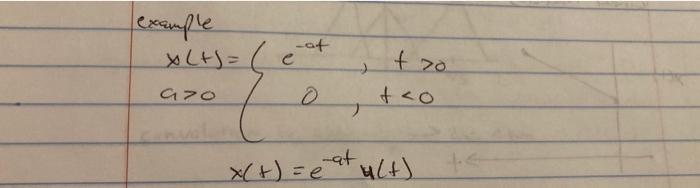 example
x(t) = { e^-at , t >0
a>0 0 , t<0
x(t) = e^-at u(t)